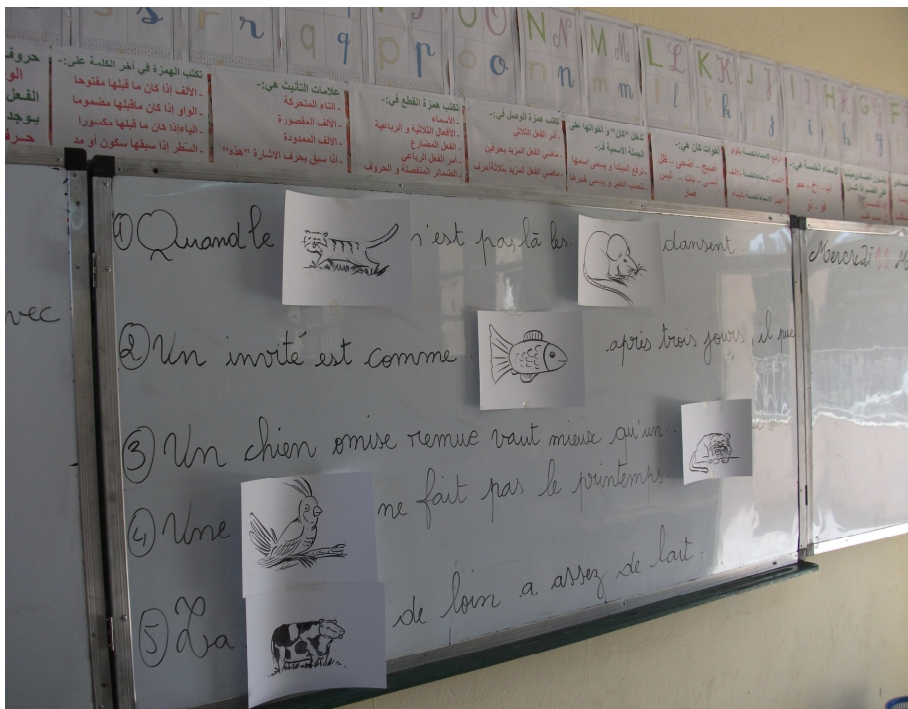 S s r r q q p p O o o N N n n M M m m L L l l K K k k J J j j I i i H h h G g F
تكتب الهمزة في آخر الكلمة على:-
- الألف إذا كان ما قبلها مفتوحا
- الواو إذا كان ماقبلها مضموما
- الياء إذا كان ما قبلها مكسورا
- السطر إذا سبقها سكون او مد
علامات التأنيث هي:-
- التاء المتحركة
- الألف المقصورة
- الألف الممدودة
- إذا سبق بحرف الاشارة "هذه"
تكتب همزة القطع في:-
- الأسماء
- الأفعال الثلاثية و الرباعية
- الفعل المضارع
- أمر الفعل الرباعي
- الضمائر المنفصلة و الحروف
تكتب همزة الوصل في:-
- أمر الفعل الثلاثي
- ماضي الفعل المزيد بحرفين
- ماضي الفعل المزيد بثلاثة أحرف
تدخل "كان" و أخواتها على
الجملة الاسمية فـ:-
- ترفع المبتدا و يسمى اسمها
- تنصب الخبر و يسمى خبرها
أخوات كان هي:-
أصبح - أضحى - ظل
أمسى - بات - ليس
صار
حروف
الفعل
يوجد
vec
① Quand le n'est pas là les dansent
② Un invité est comme après trois jours, il pue
③ Un chien omise remue vaut mieux qu'un
④ Une ne fait pas le printemps
⑤ La de loin a assez de lait.
Mercredi 11 M